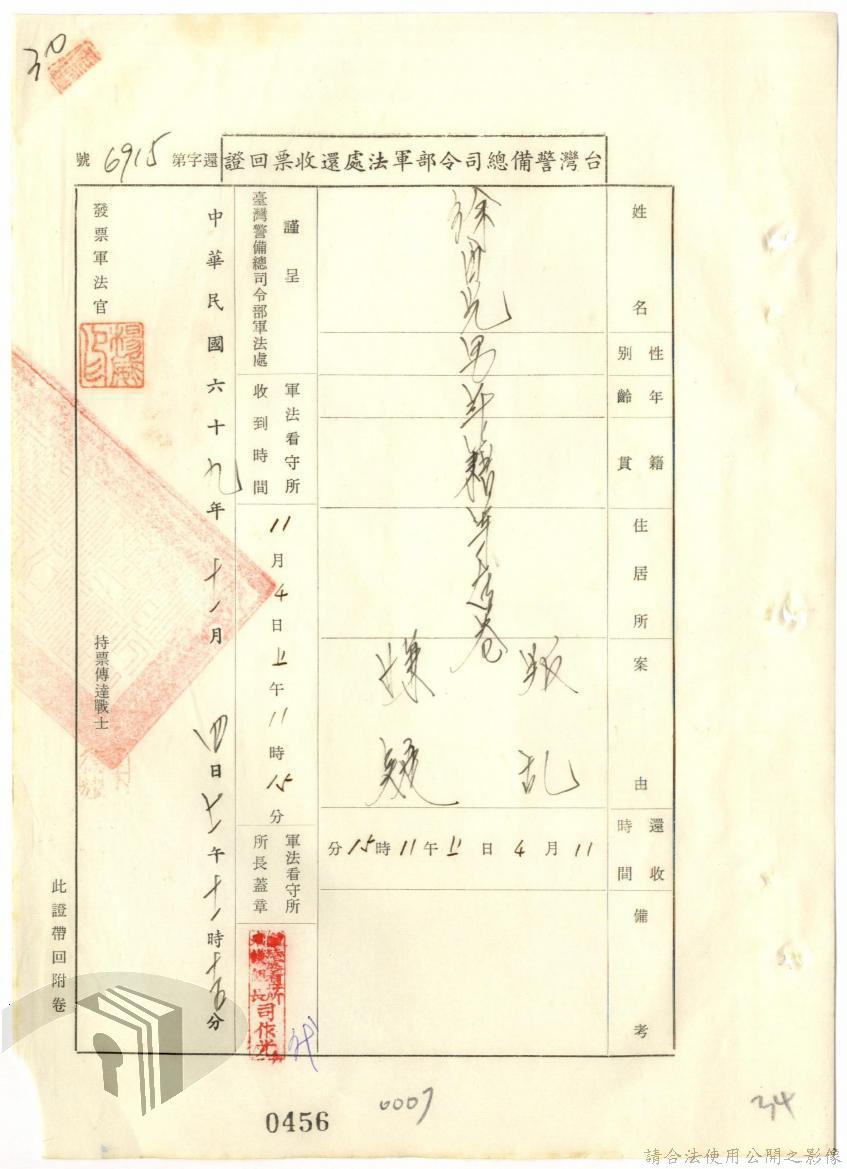 30
台灣警備總司令部軍法處還收票回證
還字第6915號
姓名
徐
性別
男
年齡
年
籍貫
籍
住居所
等在卷
案由
叛乱
嫌疑
還收時間
11月4日上午11時15分
備考
謹呈
臺灣警備總司令部軍法處
軍法看守所
收到時間
11月4日上午11時15分
軍法看守所
所長蓋章
長司作光
中華民國六十九年十一月四日上午十一時十五分
發票軍法官
持票傳達戰士
此證帶回附卷
0456
0007
34
請合法使用公開之影像